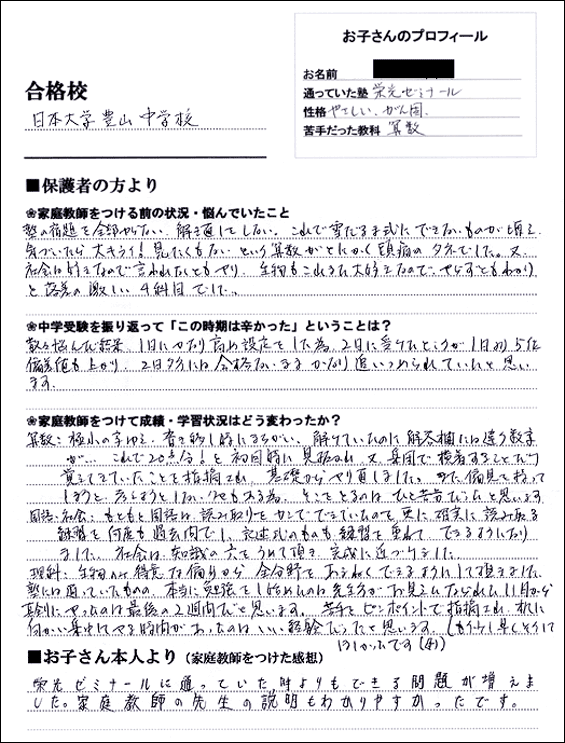 お子さんのプロフィール
お名前
通っていた塾 栄光ゼミナール
性格 やさしい、がん固。
苦手だった教科 算数
合格校
日本大学豊山中学校
■保護者の方より
❀家庭教師をつける前の状況・悩んでいたこと
塾の宿題を全部やらない、解き直しもしない。これで雪だるま式にできないものが増え、
気づいたら大キライ!見たくもないという算数がとにかく頭痛のタネでした。又、
社会は好きなので言われなくともやり、生物もこれまた大好きなので、やらずともわかり
と落差の激しい4科目でした。
❀中学受験を振り返って「この時期は辛かった」ということは?
散々悩んだ結果、1日にかなり高め設定をした為、2日に受けたところが1日より5位
偏差値も上がり、2日夕方には合格ないままかなり追いつめられていたと思い
ます。
❀家庭教師をつけて成績・学習状況はどう変わったか?
算数:極小の字ゆえ、書き移し時にまちがい、解けていたのに解答欄には違う数字
が…これで20点分!と初回時に見抜かれ、又、集団で授業することだけ
覚えてきていたことを指摘され、基礎からやり直しました。また、偏見を持って
しまうと、考えようとしないクセもある為、そこをとるのはひと苦労だったと思います。
国語・社会:もともと国語は、読み取りをカンでできていたのを更に、確実に読み取る
練習を何度も過去問でし、記述式のものも練習を重ねて、できるようになり
ました。社会は知識の穴をうめて頂き、完成に近づけました。
理科:生物のみ得意な偏りから、全分野をまんべんなくできるようにして頂きました。
塾には通っていたものの、本当に勉強をし始めたのは先生方がお見えになられた11月から
真剣にやったのは最後の2週間だと思います。苦手をピンポイントで指摘され、机に
向かい集中してやる時間があったのはいい経験だったと思います。(もう少し早くそうして
ほしかったです(笑)
■お子さん本人より(家庭教師をつけた感想)
栄光ゼミナールに通っていた時よりもできる問題が増えま
した。家庭教師の先生の説明もわかりやすかったです。